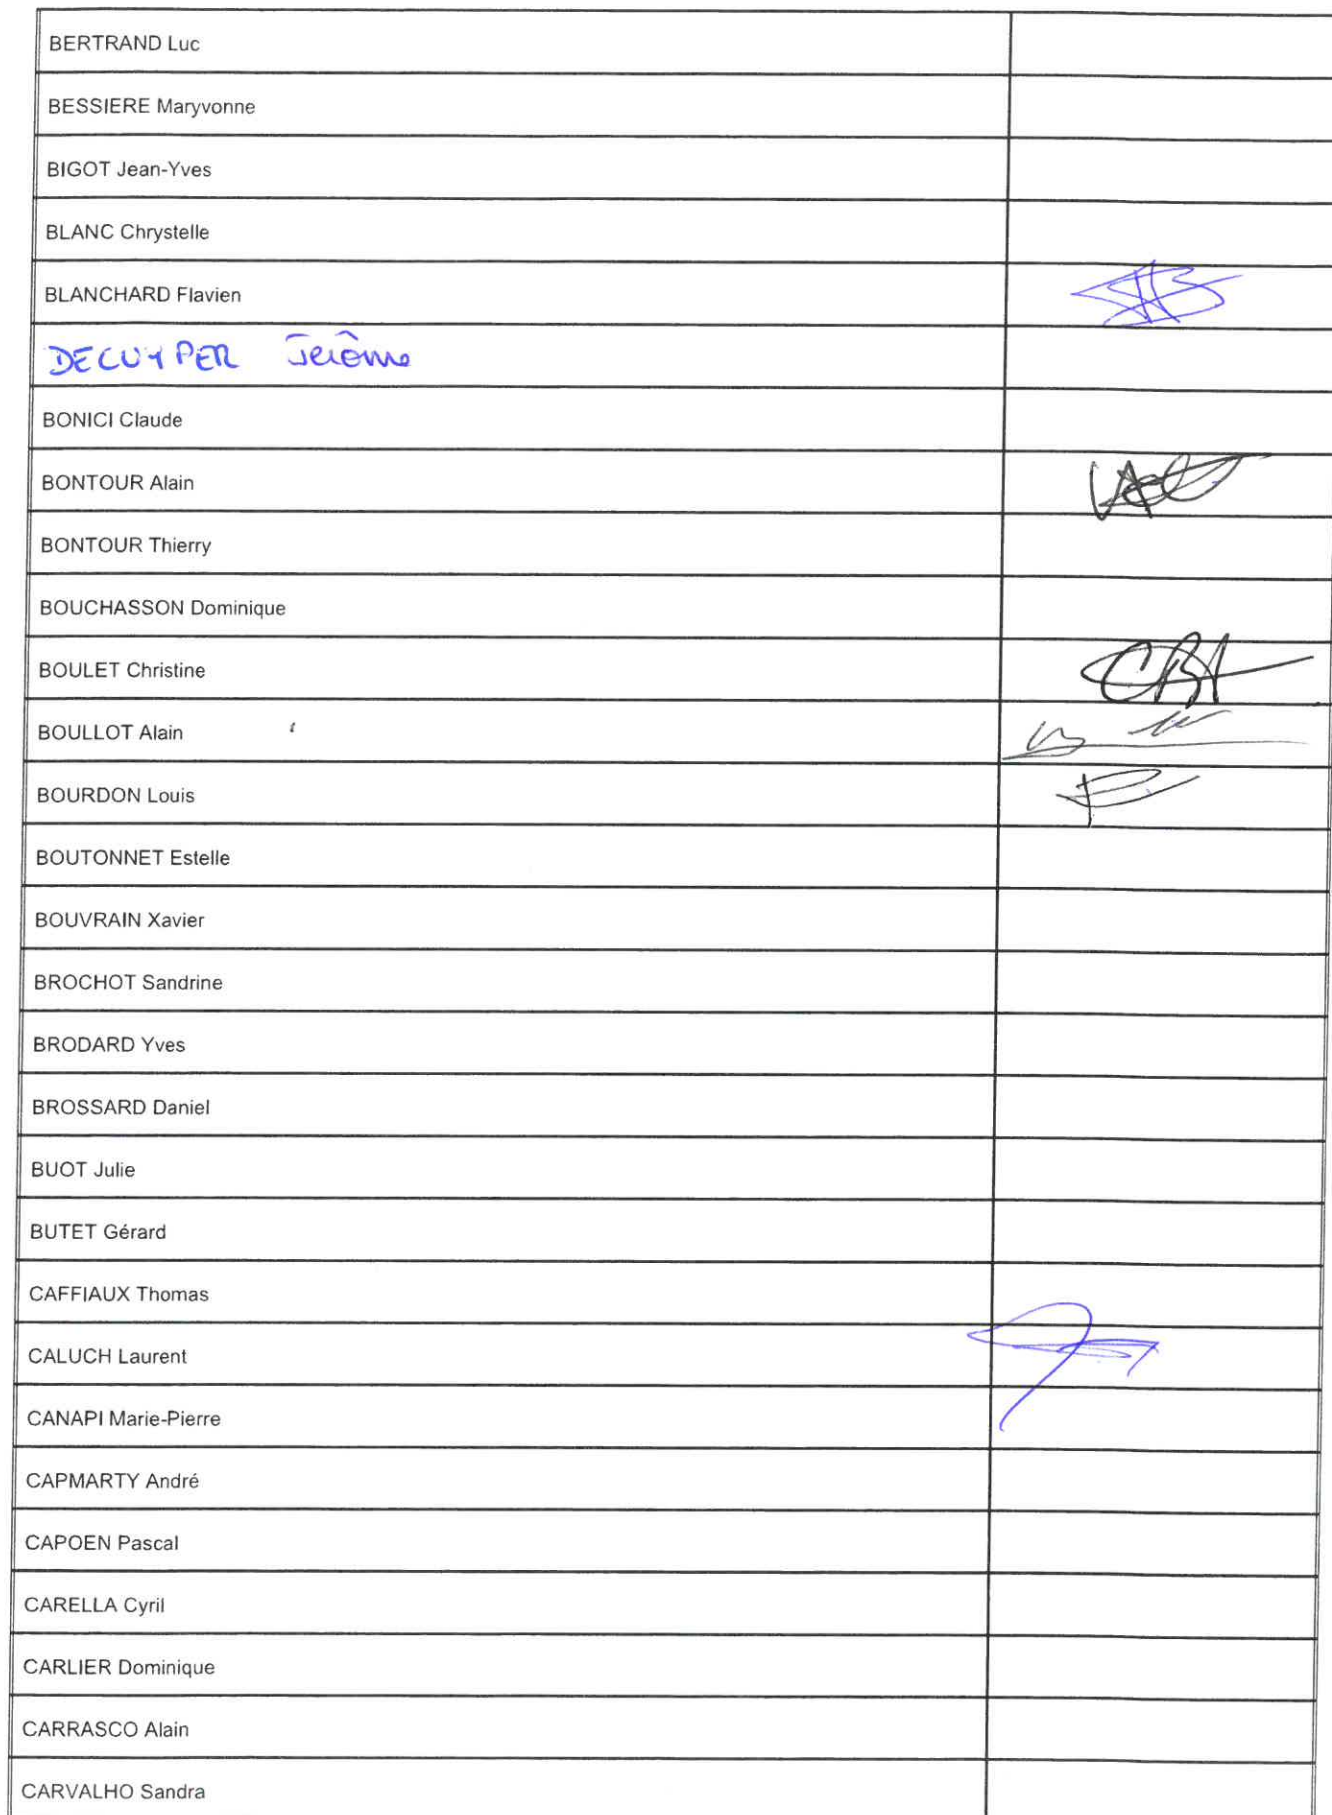 BERTRAND Luc
BESSIERE Maryvonne
BIGOT Jean-Yves
BLANC Chrystelle
BLANCHARD Flavien
DECUYPER Jérôme
BONICI Claude
BONTOUR Alain
BONTOUR Thierry
BOUCHASSON Dominique
BOULET Christine
BOULLOT Alain
BOURDON Louis
BOUTONNET Estelle
BOUVRAIN Xavier
BROCHOT Sandrine
BRODARD Yves
BROSSARD Daniel
BUOT Julie
BUTET Gérard
CAFFIAUX Thomas
CALUCH Laurent
CANAPI Marie-Pierre
CAPMARTY André
CAPOEN Pascal
CARELLA Cyril
CARLIER Dominique
CARRASCO Alain
CARVALHO Sandra